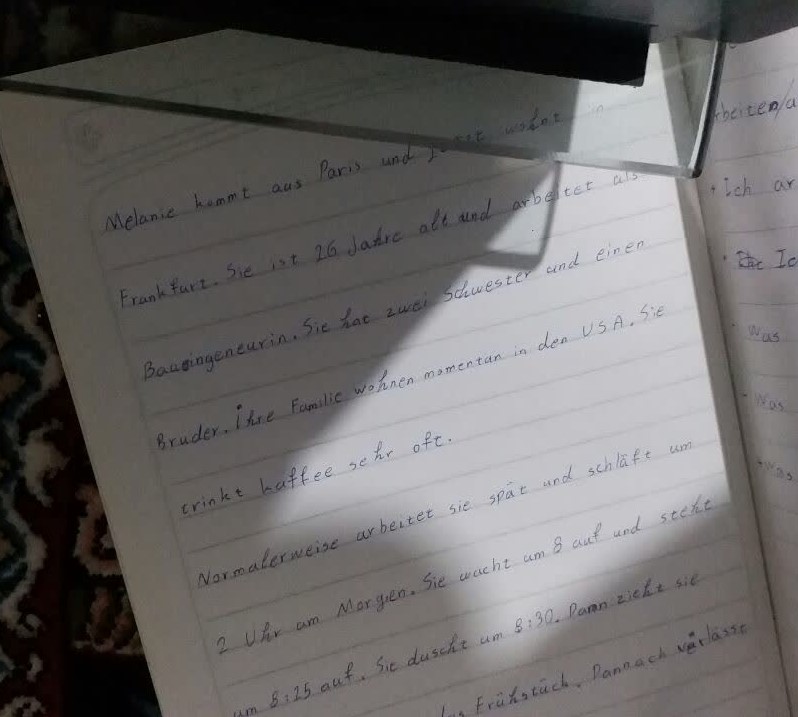 Melanie kommt aus Paris und jetzt wohnt in
Frankfurt. Sie ist 26 Jahre alt und arbeitet als
Bauingeneurin. Sie hat zwei Schwester und einen
Bruder. Ihre Familie wohnen momentan in den USA. Sie
trinkt kaffee sehr oft.
Normalerweise arbeitet sie spät und schläft um
2 Uhr am Morgen. Sie wacht um 8 auf und steht
um 8:25 auf. Sie duscht um 8:30. Dann zieht sie
Frühstück. Dannach verlässt
arbeiten/a
• Ich ar
• Ic
• Was
• Was
• Was